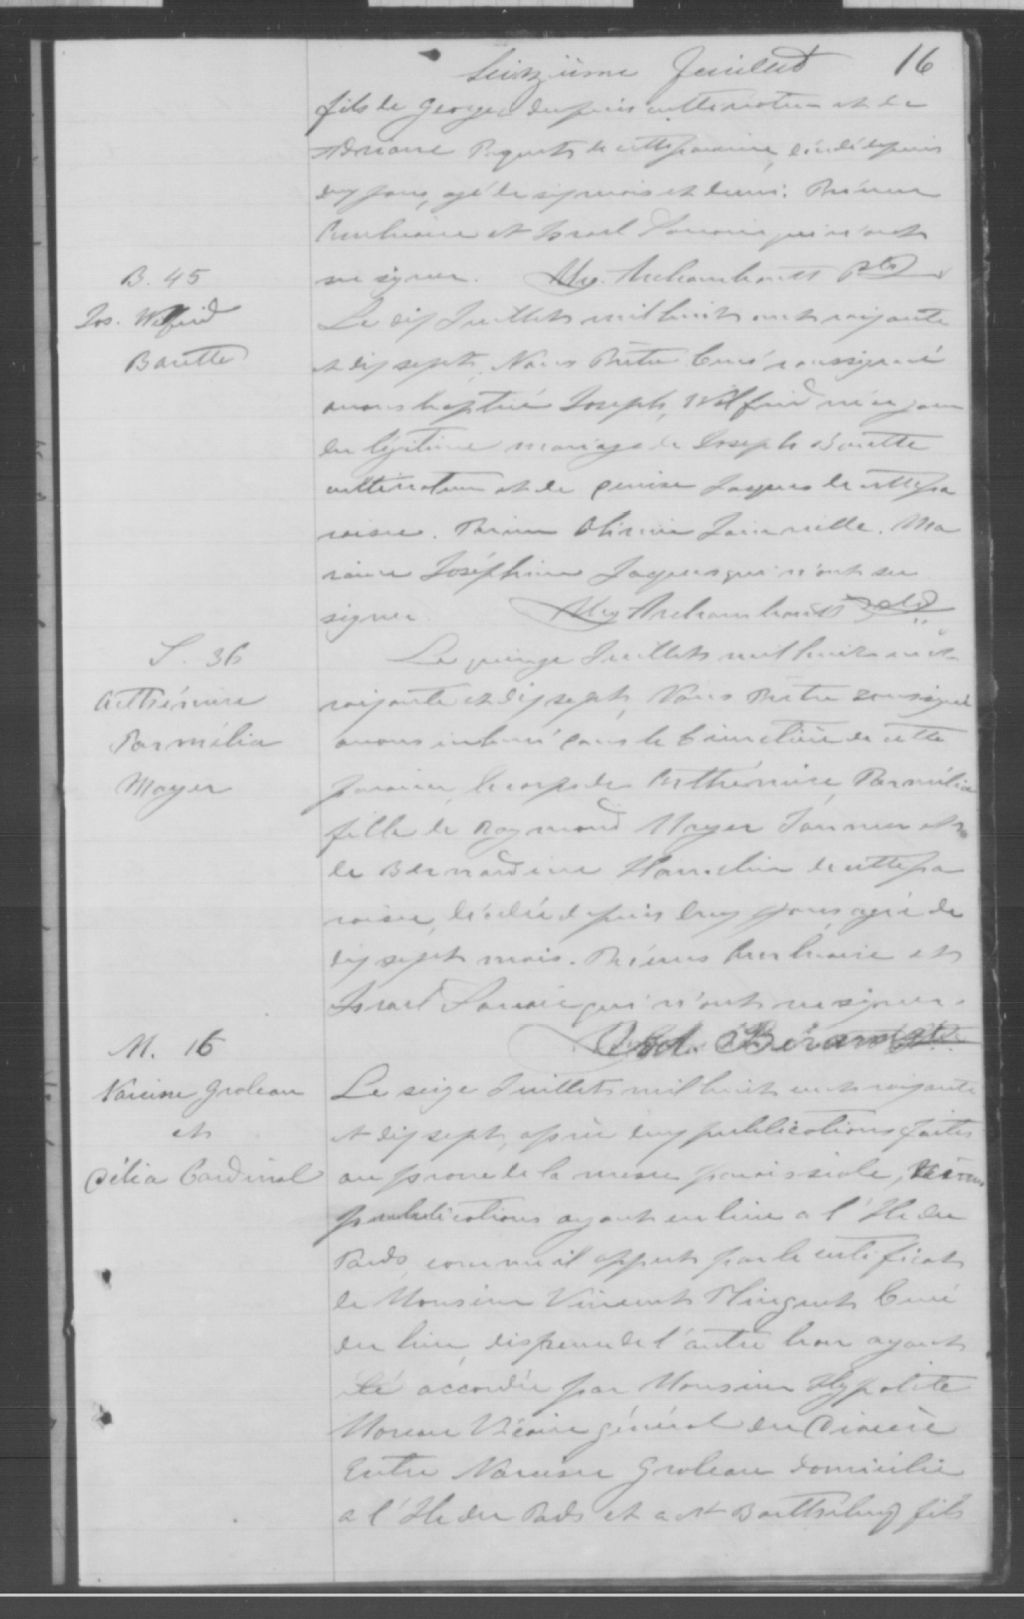 Seizième feuillet 16
fils de George cultivateur et de
de cette paroisse, décédé depuis
dix jours, agé de six mois et demi.
et Israel qui n'ont
B. 45
su signer. Alex. Archambault Ptre
Jos. Wilfrid
Barette
Le dix Juillet mil huit cent soixante
et dix sept, Nous Prêtre Curé soussigné
avons baptisé Joseph, Wilfrid né ce jour
du légitime mariage de Joseph Barette
cultivateur et de Jaques de cette pa
roisse. Parrain Olivier Joinville. Ma
raine Joséphine Jaques qui n'ont su
signer. Alex Archambault Ptre
S. 36
Arthémise
Parmélia
Mayer
Le quinze Juillet mil huit cent
soixante et dix sept, Nous Prêtre soussigné
avons inhumé dans le Cimetière de cette
paroisse, le corps de Arthémise, Parmélia
fille de Raymond Mayer et
de Bernardine Hamelin de cette pa
roisse, décédée depuis deux jours agée de
dix sept mois. et
Israel qui n'ont su signer.
M. 16
Narcisse Groleau
et
Célia Cardinal
Le seize Juillet mil huit cent soixante
et dix sept, après deux publications faites
au prone de la messe paroissiale,
publications ayant eu lieu a l'Ile du
Pads, comme il appert par le certificat
de Monsieur Vincent Plinguet Curé
du lieu, dispense de l'autre ban ayant
été accordée par Monsieur Hypolite
Moreau Vicaire général du Diocèse
Entre Narcisse Groleau domicilié
a l'Ile du Pads et a St Barthélemy fils